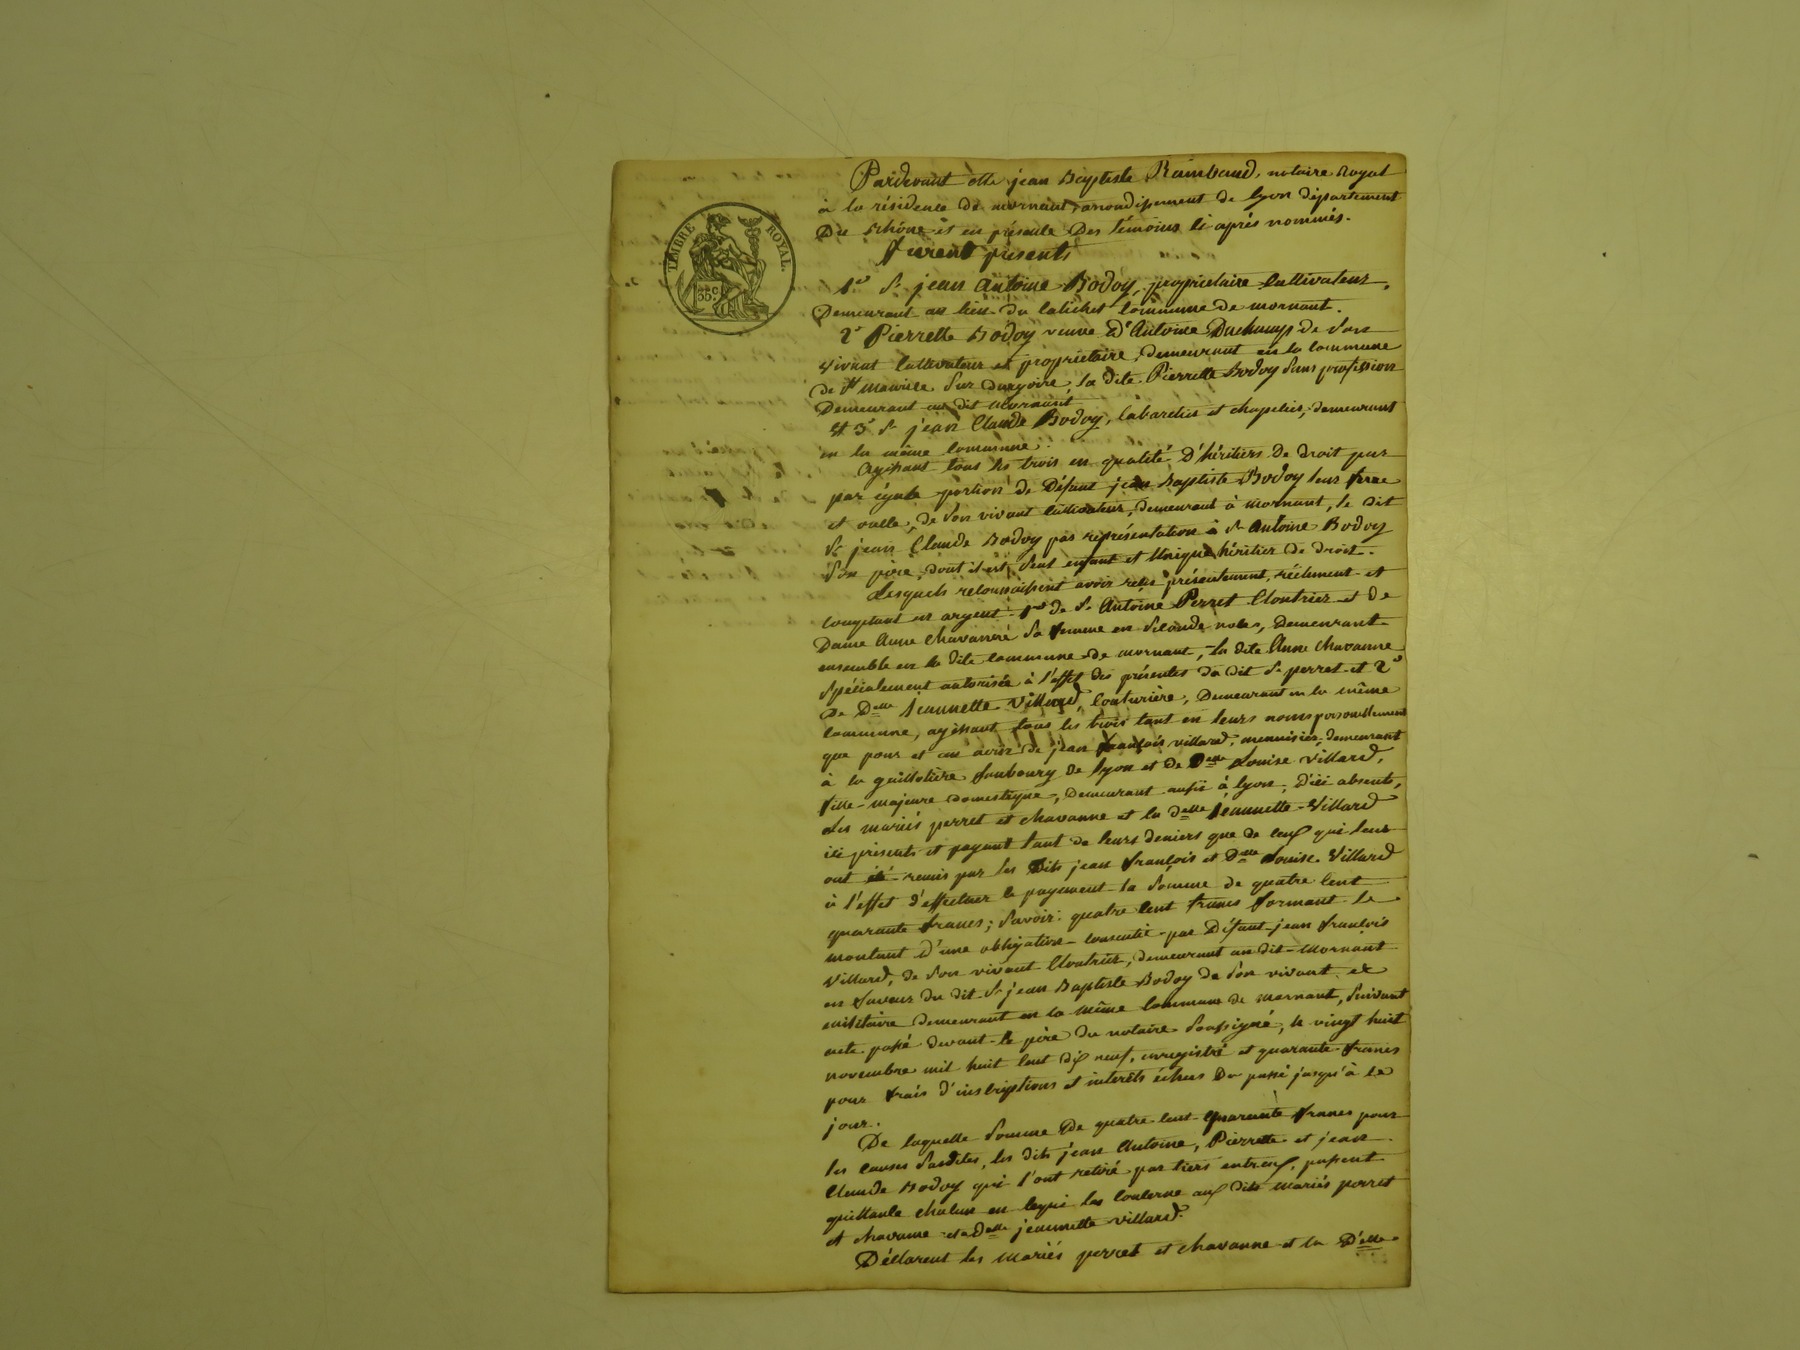 TIMBRE ROYAL.
35c.
Pardevant Me jean Baptiste Raimbaud, notaire Royal
à la résidence de mornant, arrondissement de lyon département
Du rhône et en présence Des témoins ci après nommés.
furent présents
1o Sr jean Antoine Bodoy, propriétaire Cultivateur,
Demeurant au lieu du commune de mornant.
2o Pierrette Bodoy veuve D'Antoine Duchamp de son
vivant Cultivateur et propriétaire, demeurant en la commune
de St Maurice sur dargoire, la dite Pierrette Bodoy sans profession
Demeurant au dit Mornant
et 3o Sr jean Claude Bodoy, cabaretier et chapelier, demeurant
en la même commune.
agissant tous les trois en qualité D'héritiers De droit par
par égale portion de Défunt jean Baptiste Bodoy leur frere
et oncle, de son vivant cultivateur, demeurant à mornant, le dit
Sr jean Claude Bodoy par représentation à Sr Antoine Bodoy
son père, dont il est seul enfant et Unique héritier de droit.
Lesquels reconnaissent avoir reçu présentement, réellement et
comptant en argent 1o de Sr Antoine Perret Cloutrier et de
Dame Anne Chavanne sa femme en seconde noces, Demeurant
ensemble en la dite commune de mornant, la dite Anne Chavanne
spécialement autorisée à l'effet des présentes du dit Sr perret et 2o
de Delle jeannette Villard, couturière, Demeurant en la même
commune, agissant tous les trois tant en leurs noms personnellement
que pour et au acvis de jean françois villard, menuisier, demeurant
à la guillotière faubourg de lyon et de Delle Louise Villard,
fille majeure domestique, Demeurant aussi à lyon, d'ici absents,
Les mariés perret et chavanne et la delle jeannette Villard
ici présents et payant tant de leurs deniers que de ceux qui leur
ont été remis par les Dits jean françois et Delle Louise Villard
à l'effet d'effectuer le payement la somme de quatre cent
quarante francs; savoir: quatre cent francs formant le
montant D'une obligation consentie par Défunt jean françois
Villard, de son vivant Cloutrier, demeurant au dit Mornant
en faveur du dit Sr jean Baptiste Bodoy de son vivant ex
militaire demeurant en la même commune de mornant, suivant
acte passé devant le père du notaire soussigné, le vingt huit
novembre mil huit cent dix neuf, enregistré et quarante francs
pour frais d'inscriptions et intérêts échus Du passé jusqu'à ce
jour.
De laquelle somme de quatre cent quarante francs pour
les causes susdites, les dits jean Antoine, Pierrette et jean
Claude Bodoy qui l'ont retiré par tiers entreux, passent
quittance chacun en ce qui les concerne aux dits mariés perret
et chavanne et a Delle jeannette villard.
Déclarent les mariés perret et chavanne et la D'elle